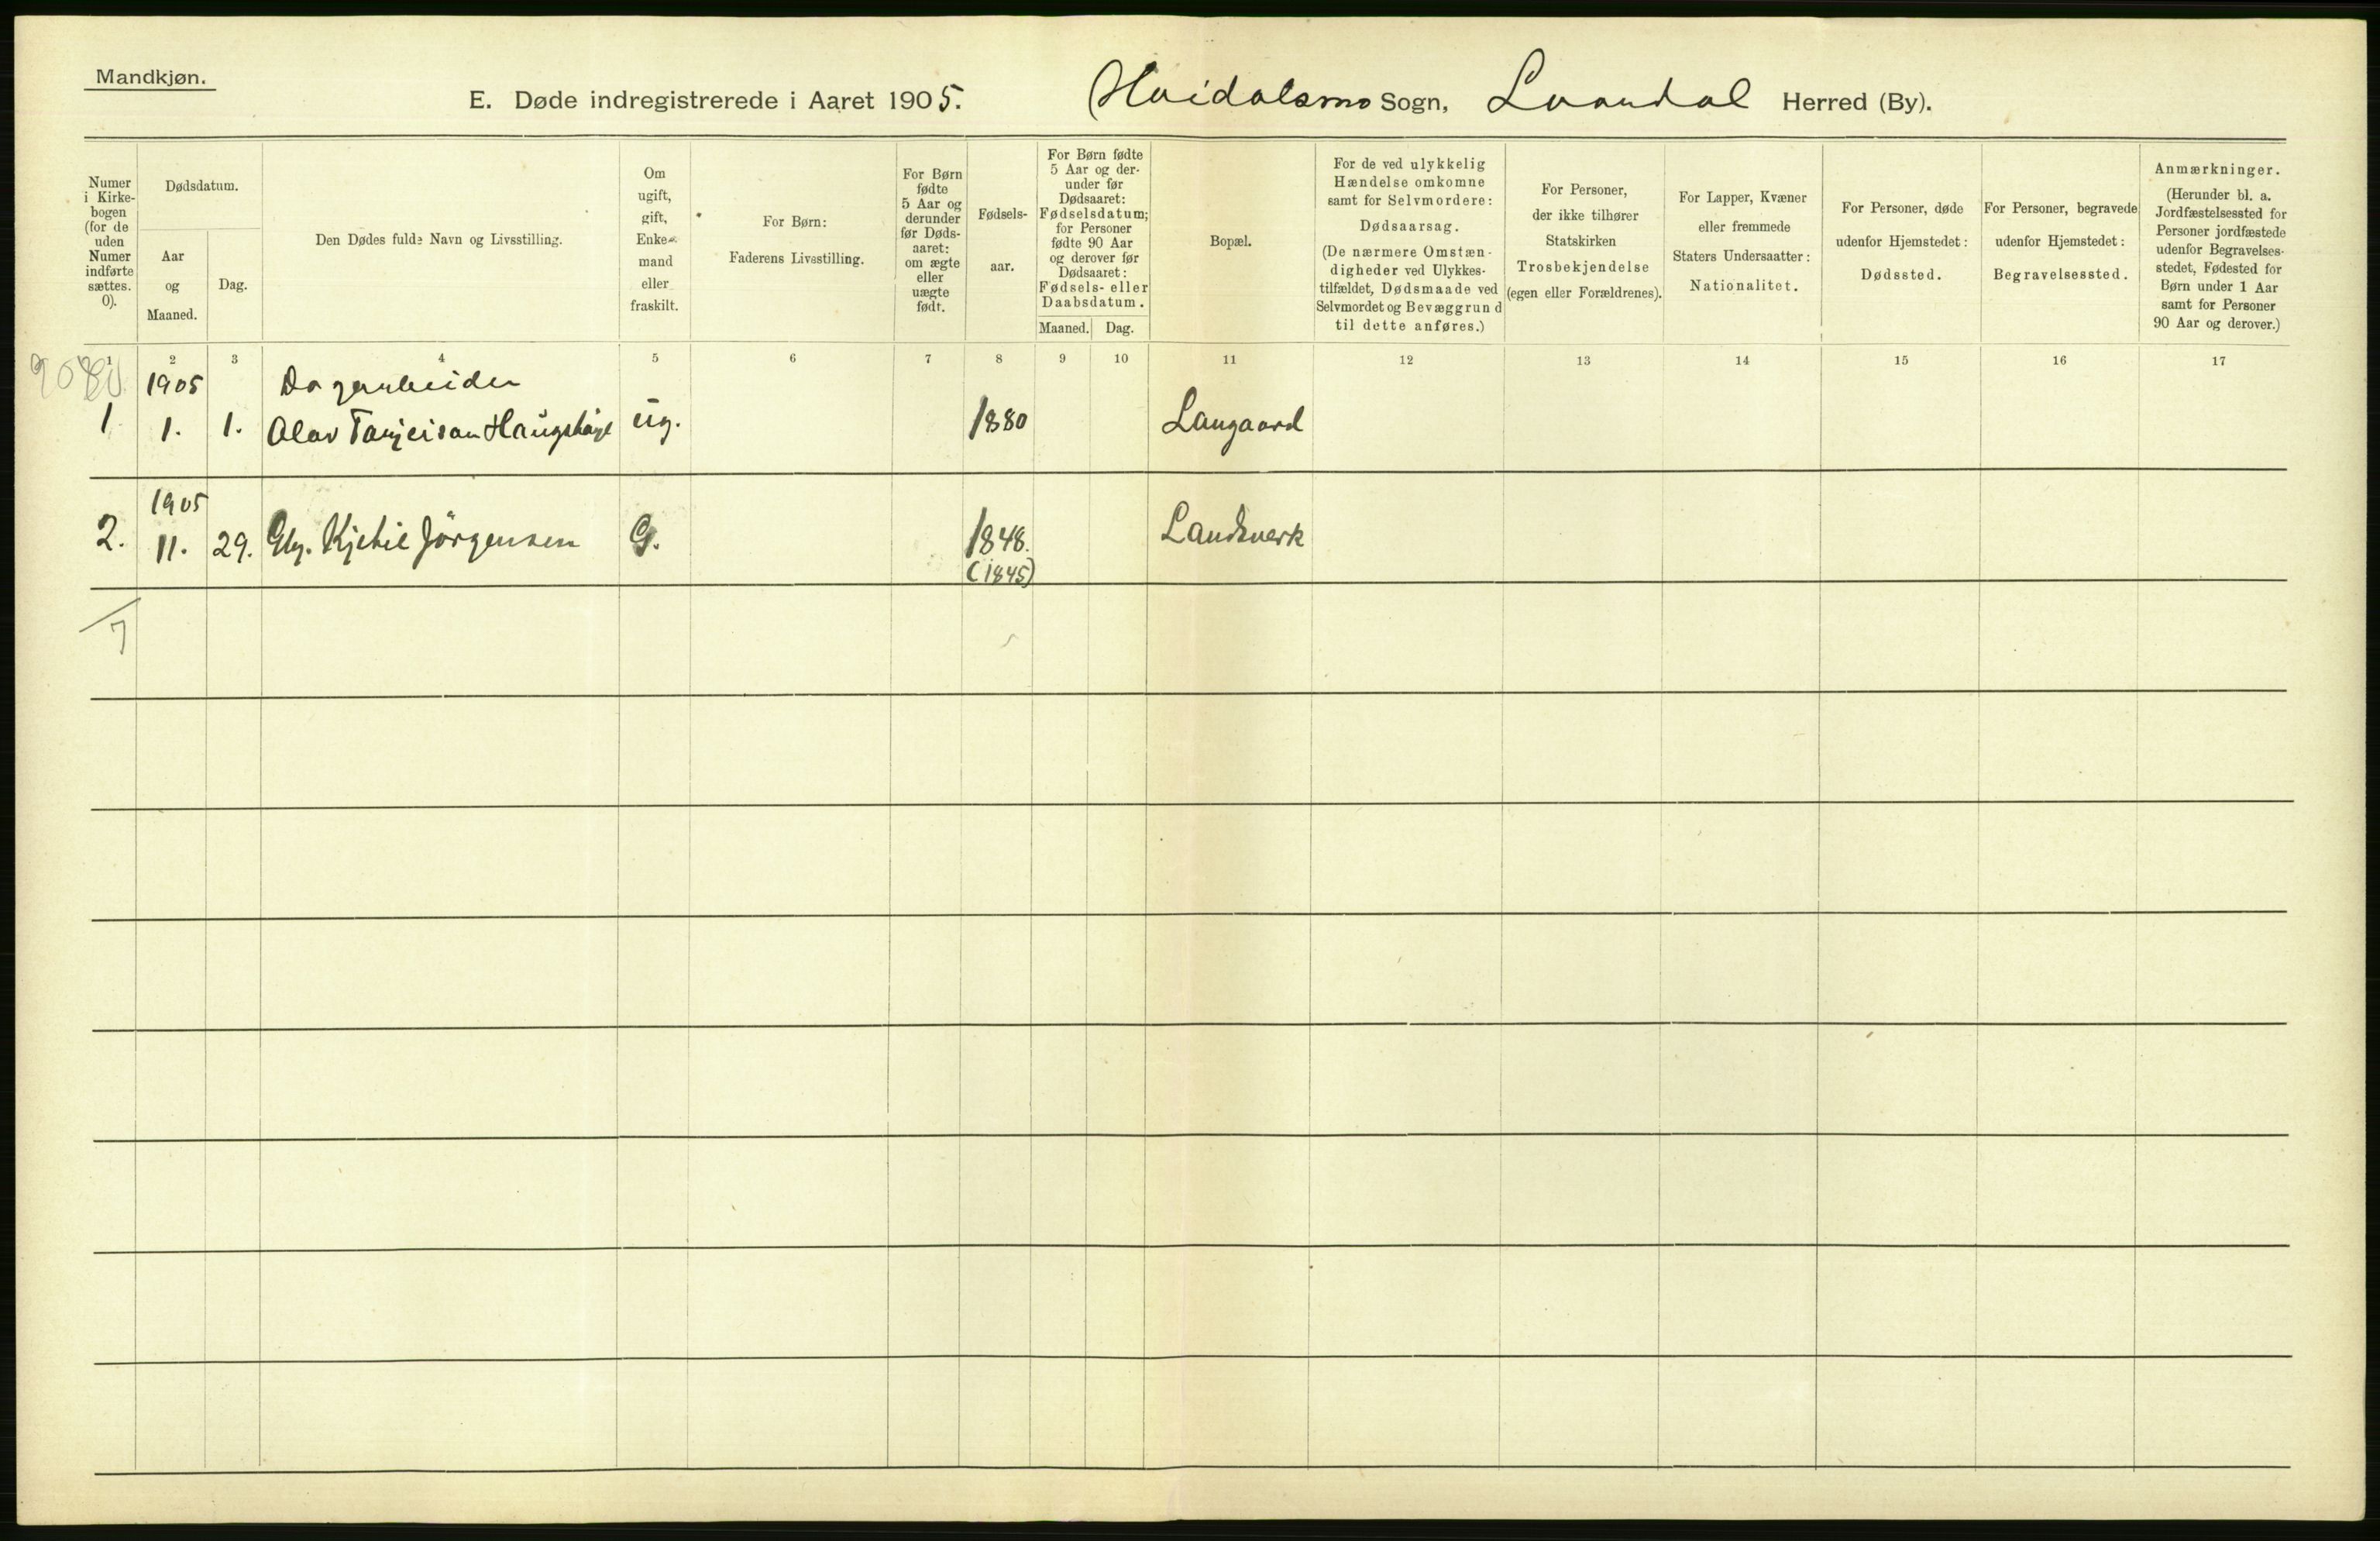 Mandkjøn.
E. Døde indregistrerede i Aaret 1905. Høidalsmo Sogn, Laardal Herred (By).
Numer
i Kirke-
bogen
(for de
uden
Numer
indførte
sættes.
0).
Dødsdatum.
Aar
og
Maaned.
Dag.
Den Dødes fulde Navn og Livsstilling.
Om
ugift,
gift,
Enke-
mand
eller
fraskilt.
For Børn:
Faderens Livsstilling.
For Børn
fødte
5 Aar og
derunder
før Døds-
aaret:
om ægte
eller
uægte
født.
Fødsels-
aar.
For Børn fødte
5 Aar og der-
under før
Dødsaaret:
Fødselsdatum;
for Personer
fødte 90 Aar
og derover før
Dødsaaret:
Fødsels- eller
Daabsdatum.
Maaned. Dag.
Bopæl.
For de ved ulykkelig
Hændelse omkomne
samt for Selvmordere:
Dødsaarsag.
(De nærmere Omstæn-
digheder ved Ulykkes-
tilfældet, Dødsmaade ved
Selvmordet og Bevæggrund
til dette anføres.)
For Personer,
der ikke tilhører
Statskirken
Trosbekjendelse
(egen eller Forældrenes).
For Lapper, Kvæner
eller fremmede
Staters Undersaatter:
Nationalitet.
For Personer, døde
udenfor Hjemstedet:
Dødssted.
For Personer, begravede
udenfor Hjemstedet:
Begravelsessted.
Anmærkninger.
(Herunder bl. a.
Jordfæstelsessted for
Personer jordfæstede
udenfor Begravelses-
stedet, Fødested for
Børn under 1 Aar
samt for Personer
90 Aar og derover.)
1 2 3 4 5 6 7 8 9 10 11 12 13 14 15 16 17
1905 Dagarbeider
1. 1. 1. Olav Tarjeison ug. 1880 Laugaard
1905
2. 11. 29. Kjetil Jörgensen G. 1848. Landsverk
(1845)
7